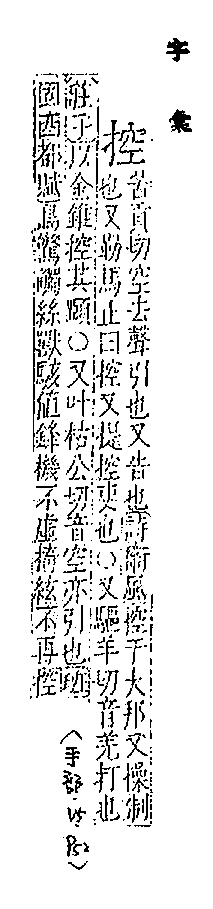 字彙
控
苦貢切空去聲引也又告也詩衛風控于大邦又操制
也又勒馬止曰控又提控吏也〇又驅羊切音羌打也
莊子以金錐控其頤〇又叶枯公切音空亦引也班
固西都賦鳥驚觸絲獸駭值鋒機不虛掎絃不再控
(手部.